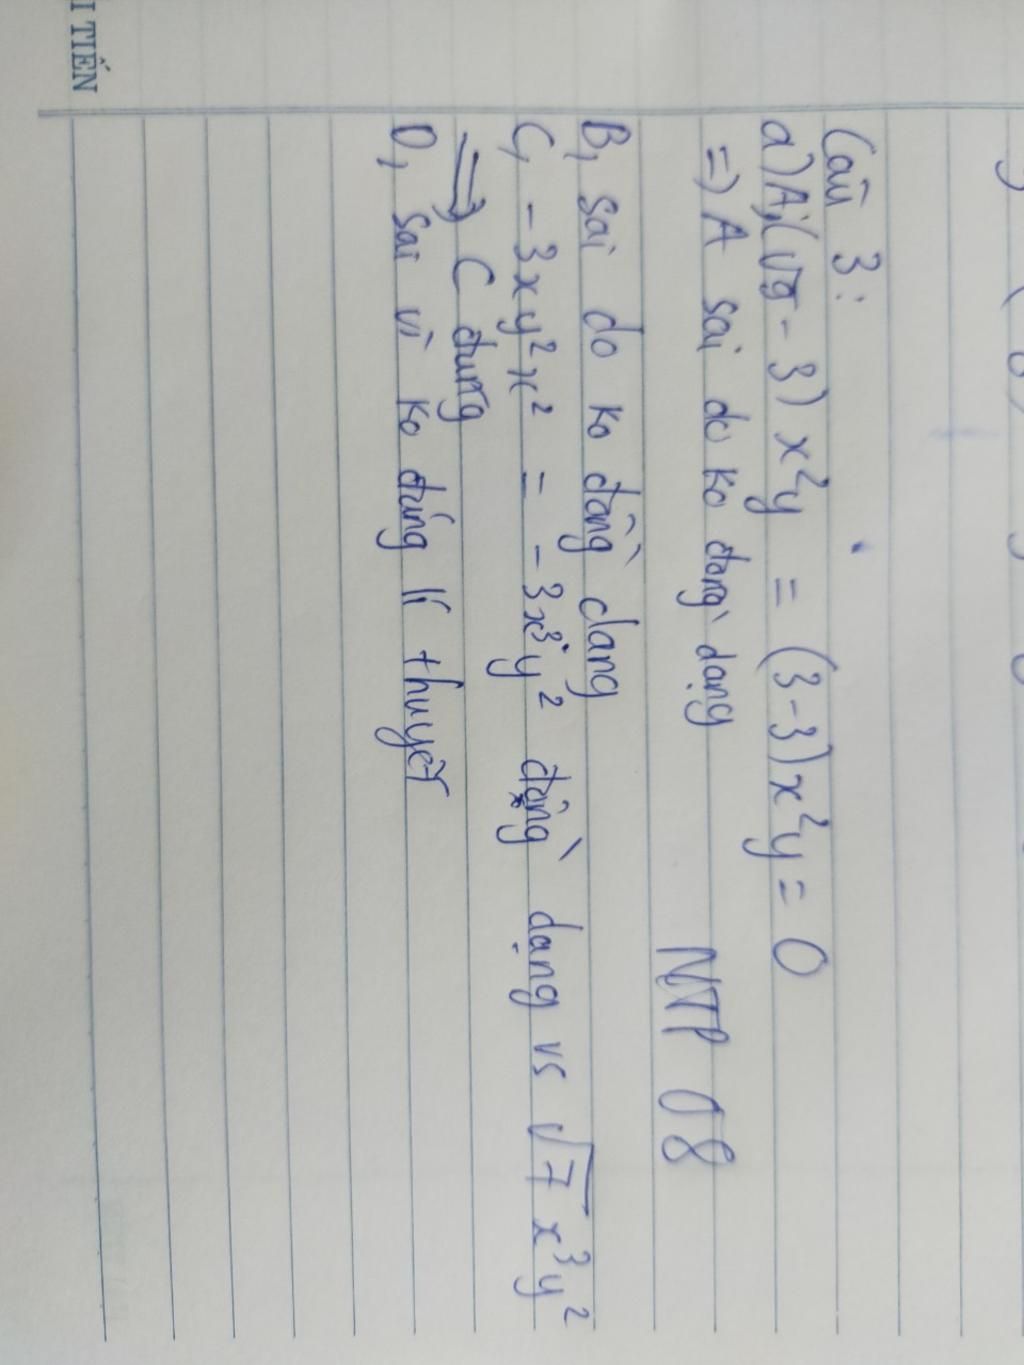 Câu 3:
a) A, (√9 - 3) x²y = (3-3)x²y = 0
=) A sai do ko đồng dạng
NTP 08
B, sai do ko đồng dang
C, -3xy²x² = -3x³y² đồng dạng vs √7 x³y²
⇒ C đung
D, sai vì ko đúng lí thuyết
I TIẾN